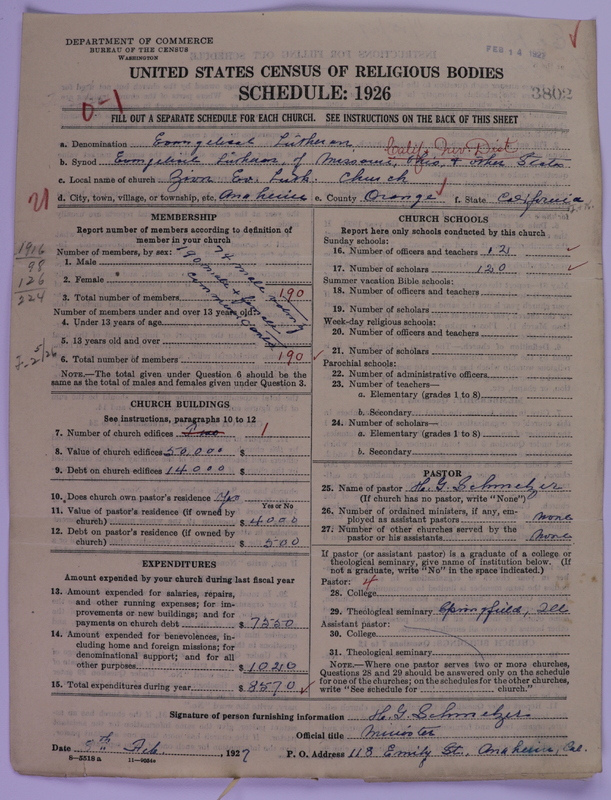 DEPARTMENT OF COMMERCE
BUREAU OF THE CENSUS
WASHINGTON
FEB 14 1927
UNITED STATES CENSUS OF RELIGIOUS BODIES
SCHEDULE: 1926
3802
0-1
FILL OUT A SEPARATE SCHEDULE FOR EACH CHURCH. SEE INSTRUCTIONS ON THE BACK OF THIS SHEET
a. Denomination Evangelical Lutheran
Calif. Nev Dist
b. Synod Evangelical Lutheran of Missouri, Ohio, & other States
c. Local name of church Zion Ev. Luth. Church
21
d. City, town, village, or township, etc. Anaheim e. County Orange f. State California
MEMBERSHIP
Report number of members according to definition of member in your church
Number of members, by sex:
1. Male
2. Female
3. Total number of members 190
Number of members under and over 13 years old:
4. Under 13 years of age
5. 13 years old and over
6. Total number of members 190
NOTE.—The total given under Question 6 should be the same as the total of males and females given under Question 3.
74 male voting
190 male & female
1916
98
126
224
CHURCH BUILDINGS
See instructions, paragraphs 10 to 12
7. Number of church edifices 1
8. Value of church edifices 50,000 $
9. Debt on church edifices 14000 $
10. Does church own pastor's residence Yes
Yes or No
11. Value of pastor's residence (if owned by church) $ 4000
12. Debt on pastor's residence (if owned by church) $ 500
EXPENDITURES
Amount expended by your church during last fiscal year
13. Amount expended for salaries, repairs, and other running expenses; for improvements or new buildings; and for payments on church debt $ 7550
14. Amount expended for benevolences, including home and foreign missions; for denominational support; and for all other purposes $ 1020
15. Total expenditures during year $ 8570
CHURCH SCHOOLS
Report here only schools conducted by this church
Sunday schools:
16. Number of officers and teachers 12
17. Number of scholars 120
Summer vacation Bible schools:
18. Number of officers and teachers
19. Number of scholars
Week-day religious schools:
20. Number of officers and teachers
21. Number of scholars
Parochial schools:
22. Number of administrative officers
23. Number of teachers—
a. Elementary (grades 1 to 8)
b. Secondary
24. Number of scholars—
a. Elementary (grades 1 to 8)
b. Secondary
PASTOR
25. Name of pastor H. G. Schmelzer
(If church has no pastor, write "None")
26. Number of ordained ministers, if any, employed as assistant pastors none
27. Number of other churches served by the pastor or his assistants none
If pastor (or assistant pastor) is a graduate of a college or theological seminary, give name of institution below. (If not a graduate, write "No" in the space indicated.)
Pastor: 4
28. College
29. Theological seminary Springfield, Ill
Assistant pastor:
30. College
31. Theological seminary
NOTE.—Where one pastor serves two or more churches, Questions 28 and 29 should be answered only on the schedule for one of the churches; on the schedules for the other churches, write "See schedule for church."
Signature of person furnishing information H. G. Schmelzer
Official title Minister
Date 9th Feb, 1927 P. O. Address 118 Emily St., Anaheim, Cal.
8—5518 a 11—9024a